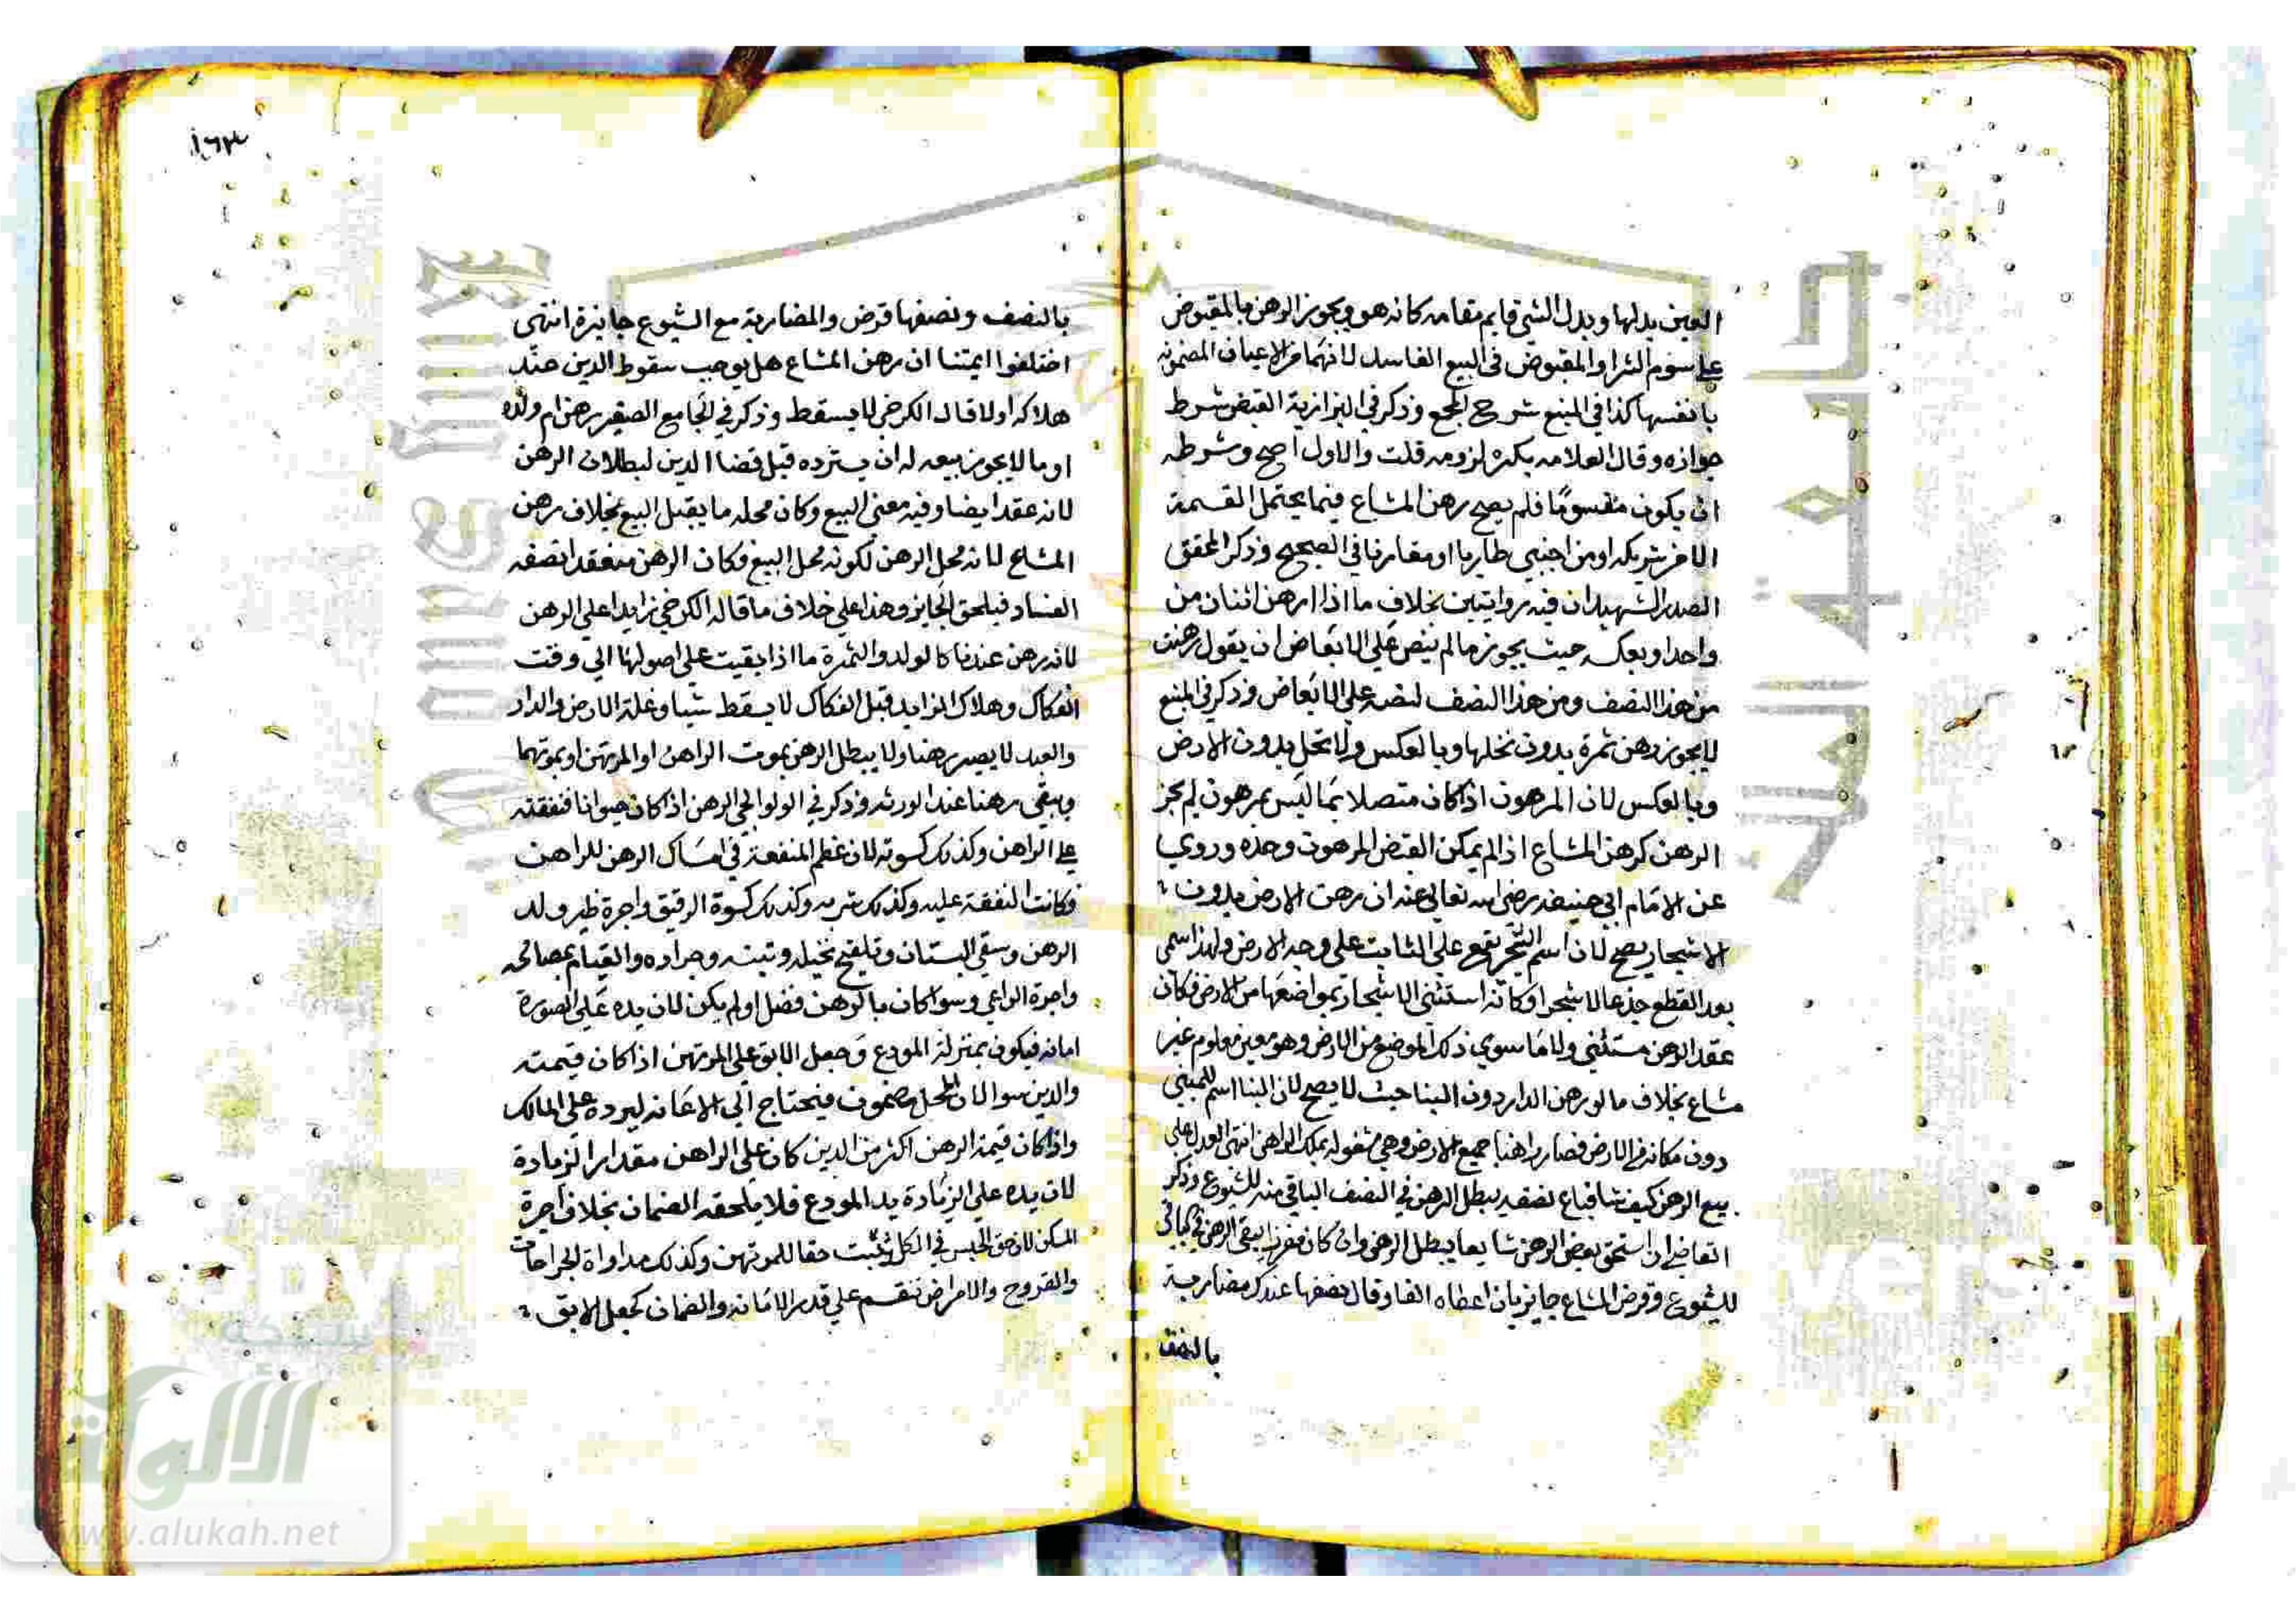 العين بدلها وبدل الشي قايم مقامه كانه هو ويجوز الرهن بالمقبوض
علي سوم الشرا والمقبوض في البيع الفاسد لانهما من الاعيان المضمونه
بانفسها كذا في المنبع شرح المجمع وذكر في البزازية القبض شرط
جوازه وقال العلامه بكر لزومه قلت والاول اصح وشرطه
ان يكون مقسوما فلم يصح رهن المشاع فيما يحتمل القسمة
الا من شريكه او من اجنبي طاريا او مقارنا في الصحيح وذكر المحقق
الصدر الشهيد ان فيه روايتين بخلاف ما اذا رهن اثنان من
واحد او بعكسه حيث يجوز ما لم ينص علي الابعاض ان يقول رهنت
من هذا النصف ومن هذا النصف لنصه علي الابعاض وذكر في المنبع
لا يجوز رهن ثمرة بدون نخلها وبالعكس ولا نخل بدون الارض
وبالعكس لان المرهون اذا كان متصلا بما ليس بمرهون لم يجز
الرهن كرهن المشاع اذ لم يمكن القبض المرهون وحده وروي
عن الامام ابي حنيفه رضي الله تعالي عنه ان رهن الارض بدون
الاشجار يصح لان اسم الشجر يقع علي الثابت علي وجه الارض ولهذا سمي
بعد القطع جذعا لا شجرا وكانه استثني الاشجار بمواضعها من الارض فكان
عقد الرهن مستثني ولا ما سوي ذلك الموضع من الارض وهو معين معلوم غير
مشاع بخلاف ما لو رهن الدار دون البنا حيث لا يصح لان البنا اسم للمبني
دون مكانه في الارض فصار راهنا جميع الارض وهي مشغوله بملك الراهن انتهي العدل علي
بيع الرهن كيف شا فباع نصفه يبطل الرهن في النصف الباقي منه للشيوع وذكر
القاضي ان استحق بعض الرهن شايعا يبطل الرهن وان كان مفرزا يبقي الرهن في الباقي
للشيوع وقرض المشاع جايز بان اعطاه الفا وقال نصفها عندك مضاربة
بالنصف
١٦٣
بالنصف ونصفها قرض والمضاربة مع الشيوع جايزة انتهي
اختلفوا ايمتنا ان رهن المشاع هل يوجب سقوط الدين عند
هلاكه اولا قال الكرخي لا يسقط وذكر في الجامع الصغير رهن ام ولده
او ما لا يجوز بيعه له ان يسترده قبل قضا الدين لبطلان الرهن
لانه عقد ايضا وفيه معني البيع وكان محله ما يقبل البيع بخلاف رهن
المشاع لانه محل الرهن لكونه محل البيع فكان الرهن منعقدا بصفه
الفساد فيلحق الجايز وهذا علي خلاف ما قاله الكرخي زايدا علي الرهن
لانه رهن عندنا كالولد والثمرة ما اذا بقيت علي اصولها الي وقت
الفكاك وهلاك الزايد قبل الفكاك لا يسقط شيا وغلة الارض والدار
والعبد لا يصير رهنا ولا يبطل الرهن بموت الراهن او المرتهن او بموتهما
ويبقي رهنا عند الورثه وذكر في الولوالجي الرهن اذا كان حيوانا فنفقته
علي الراهن وكذلك كسوته لان عظم المنفعة في امساك الرهن للراهن
فكانت النفقة عليه وكذلك شربه وكذلك كسوة الرقيق واجرة ظير ولد
الرهن وسقي البستان وتلقيح نخيله وتبنه وجراده والقيام بمصالحه
واجرة الراعي وسوا كان بالرهن فضل او لم يكن لان يده علي الصورة
امانه فيكون بمنزلة المودع وجعل الابق علي المرتهن اذا كان قيمته
والدين سوا لان المحل مضمون فيحتاج الي الاعانه ليرده علي المالك
واذا كان قيمة الرهن اكثر من الدين كان علي الراهن مقدار الزيادة
لان يده علي الزيادة يد المودع فلا يلحقه الضمان بخلاف اجرة
المسكن لان حق الحبس في الكل ثبت حقا للمرتهن وكذلك مداواة الجراحات
والقروح والامراض تنقسم علي قدر الامانه والضمان كجعل الابق
جامعة الملك
شبكة
الألوكة
www.alukah.net